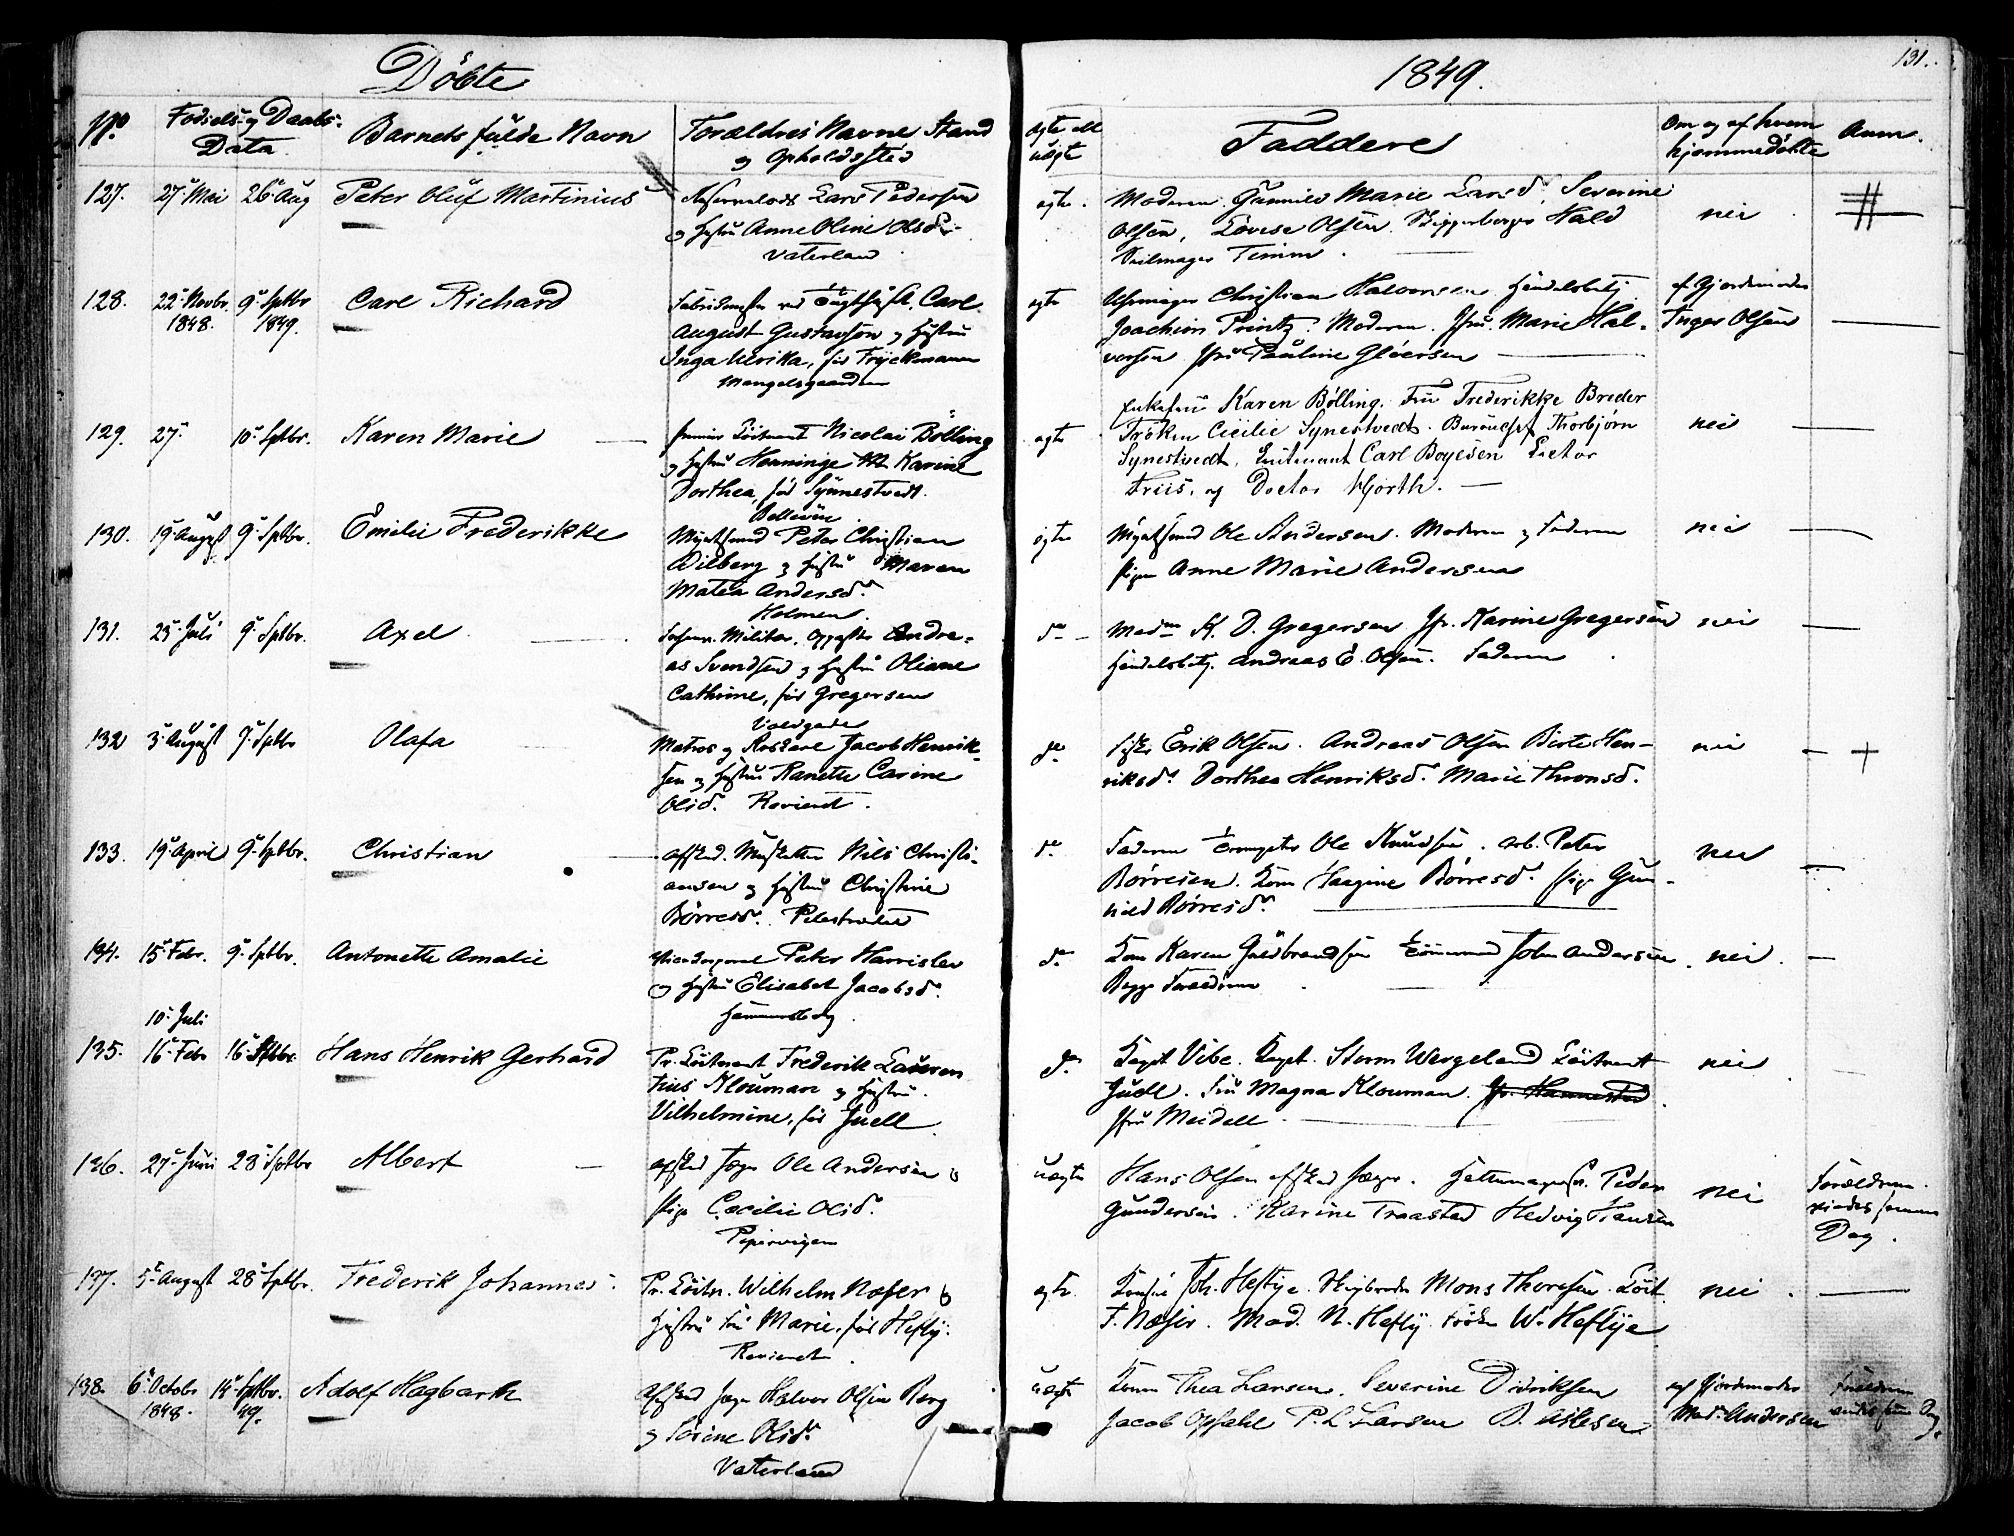 Döbte
1849.
131.
No
Födsels og Daabs-
Data.
Barnets fulde Navn
Forældres Navne Stand
og Opholdssted
Ægte ell
uægte
Faddere
Om og af hvem
hjemmedöbte
Anm.
127. 27 Mai 26 Aug Peter Oluf Martinius
Lars Pedersen
og Hustru Anne Oline Olsd.
Vaterland
ægte.
Moderen. Gunnild Marie Larsd. Severine
Olsen, Lovise Olsen. Skipperborger Hald
Seilmager Timm.
nei
128. 22 Novbr. 9 Sptbr Carl Richard
1848. 1849.
ved Tugthuset Carl
August Gustavsen og Hustru
Inga Ulrika, föd Tryckmann
Mangelsgaarden
ægte
Uhrmager Christian Halvorsen, Handelsbetj
Joachim Printz. Moderen. Jfru. Marie Hal-
vorsen Jfru Pauline Glöersen
af Gjordemoder
Inger Olsen
129. 27 10 Sptbr. Karen Marie
Premier Löitnant Nicolai Bölling
og Hustru Henninge Karine
Dorthea, föd Synnestvedt.
Bellevue
ægte
Enkefru Karen Bölling. Fru Frederikke Breder
Fröken Cicilie Synestvedt. Bureauchef Thorbjörn
Synestvedt, Lieutenant Carl Boyesen
Friis. og Doctor Hjorth.
nei
130. 19 August 9 Sptbr. Emilie Frederikke
Peter Christian
Wilberg og Hustru Maren
Matea Andersd.
Holmen.
ægte
Ole Andersen. Moderen og Faderen
Pigen Anne Marie Andersen
nei
131. 23 Juli 9 Sptbr. Axel
Militær. Andre-
as Svendsen og Hustru Oliane
Cathrine, föd Gregersen
Voldgaden
do
Madm K. D. Gregersen Jfr. Karine Gregersen
Handelsbetj. Andreas E. Olsen. Faderen
nei
132 3 August 9 Sptbr Olafa
Matros og Roskarl Jacob Henrik-
sen og Hustru Ranette Carine
Olsd. Revieret.
do
Erik Olsen. Andreas Olsen Birte Hen-
riksd. Dorthea Henriksd. Marie Thronsd.
nei
133. 19 April 9 Sptbr. Christian
afsked. Musketter Nils Christi-
ansen og Hustru Christine
Börresd. Pilestrædet
do
Faderen Ole Knudsen. Arb. Peter
Börresen. Kone Haagine Börresd. Pige Gun-
hild Börresd.
nei
134. 15 Febr. 9 Sptbr. Antonette Amalie
Peter Harrisler
og Hustru Elisabet Jacobsd.
Hammersborg
do
Kone Karen Guldbrandsen Tömmermd John Andersen
Begge Forældrene
nei.
10 Juli
135. 16 Febr 16 Sptbr. Hans Henrik Gerhard
Pr. Löitnant Frederik Lauren
tius Klouman og Hustru
Vilhelmine, föd Juell
do
Capt Vibe. Capt. Storm Wergeland Löitnant
Juell. Fru Magna Klouman.
Jfru Meidell
nei
136. 27 Juni 23 Sptbr Albert
afsked Jæger Ole Andersen og
Pige Cecilie Olsd.
Pipervigen
uægte
Hans Olsen afsked Jæger. Hattemagers. Peder
Gundersen. Karine Traasted Hedvig Hansen
nei
Forældrene
viedes samme
Dag.
137. 5 August 23 Sptbr. Frederik Johannes
Pr. Löitn. Wilhelm Næser og
Hustru Fru Marie, föd Heftye.
Revieret
ægte.
Consul Joh. Heftye. Mons Thoresen. Löit.
T. Næser. Mad. N. Heftye Fröken W. Heftye
nei.
138. 6 Octobr 14 Sptbr. Adolf Hagbarth
1848. 49.
Afsked Jæger Halvor Olsen Berg
og Sörine Olsd.
Vaterland
uægte
Kone Thea Larsen. Severine Didriksen
Jacob Opsahl P. L. Larsen
af Gjordemoder
Mad. Andersen
Forældrene
viedes samme Dag.